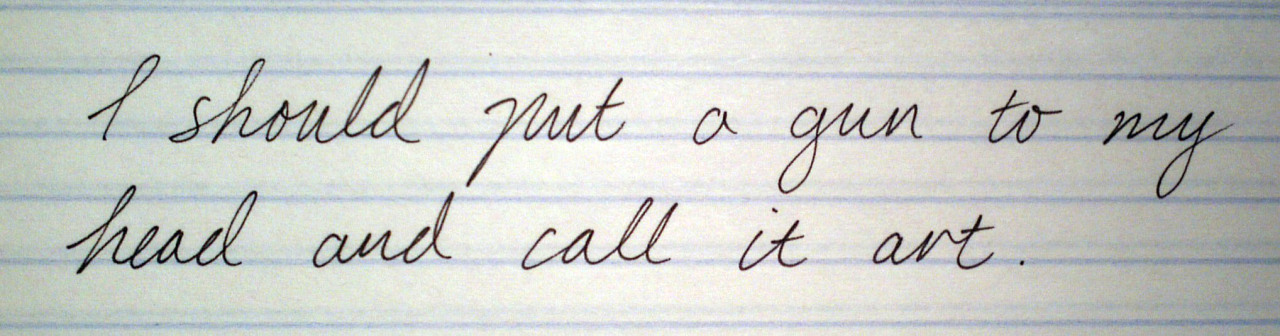 I should put a gun to my
head and call it art.